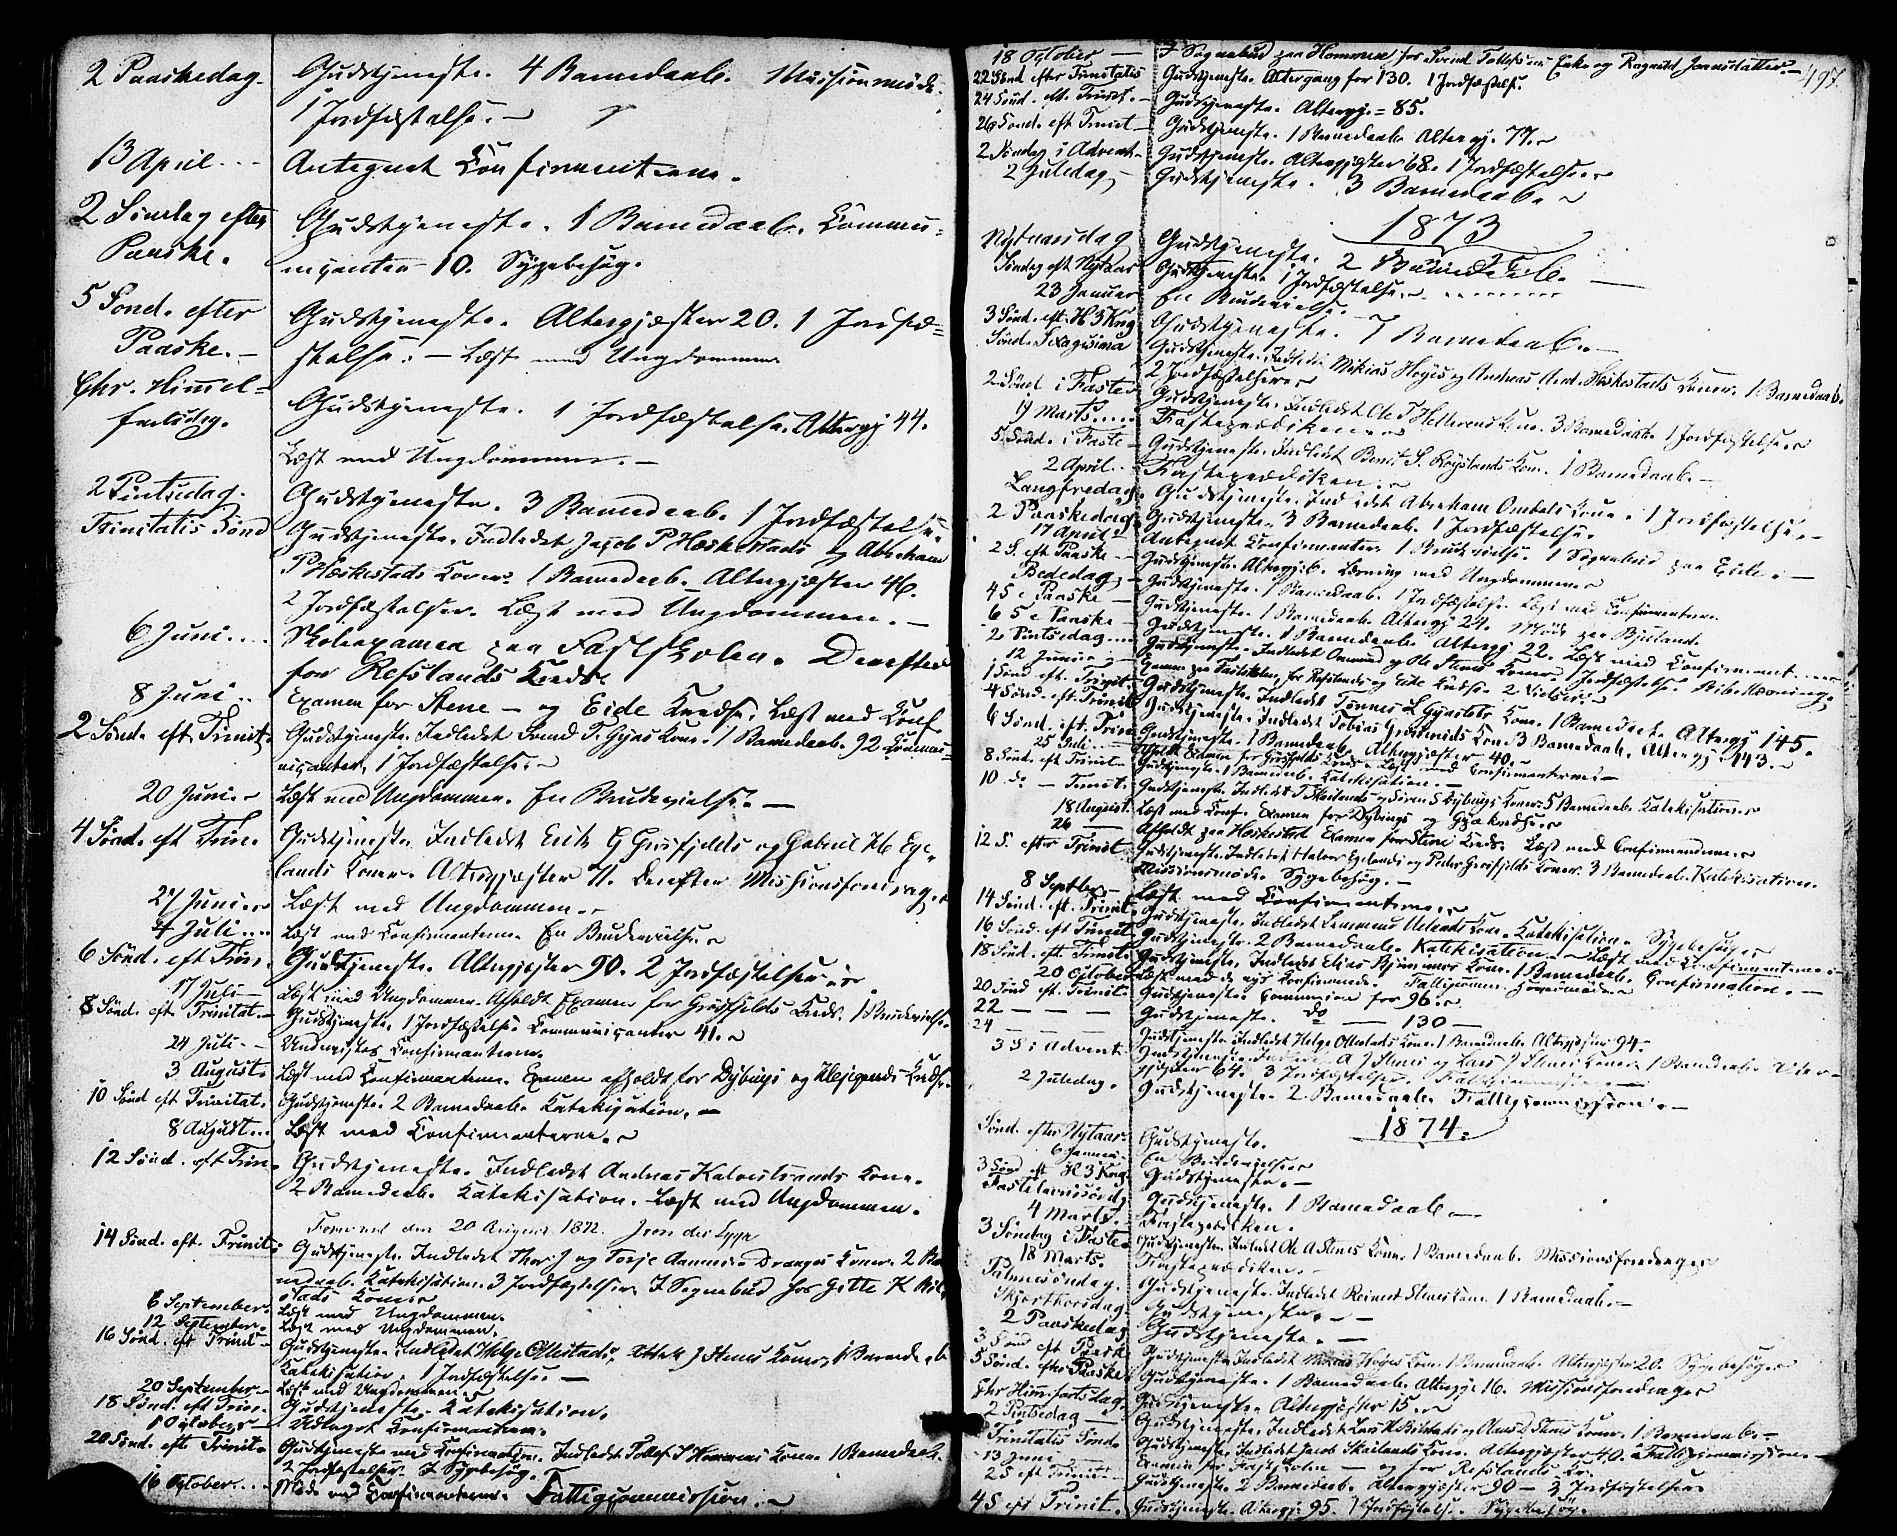 2 Paaskedag. Gudstjeneste. 4 Barnedaab. Missionsmøde.
1 Jordfæstelse. —
13 April Antegnet Confirmanterne.
2 Søndag efter Gudstjeneste. 1 Barnedaab. Commu-
Paaske. nicanter 10. Sygebesøg.
5 Sond. efter Gudstjeneste. Altergjæster 20. 1 Jordfæ-
Paaske. — stelse. — Læst med Ungdommen
Chr. Himmel- Gudstjeneste. 1 Jordfæstelse. Altergj 44.
fartsdag.
Læst med Ungdommen. —
2 Pintsedag. Gudstjeneste. 3 Barnedaab. 1 Jordfæstelse.
Trinitatis Sønd Gudstjeneste. Indledet Jacob P Hæskestads og Abraham
P Hæskestads Koner. 1 Barnedaab. Altergjæster 46.
2 Jordfæstelser. Læst med Ungdommen. —
6 Juni Skoleexamen paa Fastskolen. Derefter
for Refslands Kreds.
8 Juni Examen for Stene — og Eide Kredse. Læst med Conf.
2 Sønd. eft Trinit. Gudstjeneste. Indledet Kone. 1 Barnedaab. 92 Commu-
nicanter, 1 Jordfæstelse.
20 Juni Læst med Ungdommen. En Brudevielse. —
4 Sønd. eft Trin. Gudstjeneste. Indledet Erik G Grøsfjelds og Gabriel Ege-
lands Koner. Altergjæster 71. Derefter Missionsforedrag.
27 Juni Læst med Ungdommen.
4 Juli Læst med Confirmanterne. En Brudevielse.
6 Sønd. eft Trin. Gudstjeneste. Altergjæster 90. 2 Jordfæstelser.
17 Juli — Læst med Ungdommen. Afholdt Examen for Grøsfjelds Kreds. 1 Brudevielse.
8 Sønd. eft Trinitat. — Gudstjeneste. 1 Jordfæstelse. Communicanter 41.
24 Juli. — Undervistes Confirmanterne.
3 August. Læst med Confirmanterne. Examen afholdt for Dybings og Kredse.
10 Sønd eft Trinitat. Gudstjeneste. 2 Barnedaab. Katekisation. —
8 August. Læst med Confirmanterne.
12 Sønd. eft Trin. Gudstjeneste. Indledet Andreas Kalvestrands Kone.
2 Barnedaab. Katekisation. Læst med Ungdommen.
den 20 August 1872.
14 Sønd. eft. Trinit. Gudstjeneste. Indledet Thor J og Terje Aanensen Dranges Koner. 2 Bar-
nedaab. Katekisation. 3 Jordfæstelser. I Sognebud hos Gitte K
stads Kone
6 September. Læst med Ungdommen.
12 September. Læst med Ungdommen.
16 Sønd. eft Trinit — Gudstjeneste. Indledet Helge Ollestads, J Stenes Koner, 1 Barnedaab
Katekisation. 1 Jordfæstelse. —
20 September. Læst med Ungdommen.
18 Sønd. eft Trin. Gudstjeneste. Katekisation.
1 October — Confirmanterne.
20 Sønd. eft. Trinit. Gudstjeneste med Confirmation. Indledet Tollef S Kone. 1 Barnedaab.
2 Jordfæstelser. I Sygebesøg.
16 October Møde med Confirmanterne. Fattigcommission.
497.
18 October — I Sognebud paa Hommen for Svend Enke og Ragnild Jonasdatter. —
22 Sønd efter Trinitatis Gudstjeneste. Altergang for 130. 1 Jordfæstelse.
24 Sønd. eft. Trinit. — Gudstjeneste. Altergj. = 85.
26 Sønd. eft Trinit — Gudstjeneste. 1 Barnedaab. Altergj. 77.
2 Søndag i Advent — Gudstjeneste. Altergjæster 68. 1 Jordfæstelse.
2 Juledag — Gudstjeneste. 3 Barnedaab.
1873
Nytaarsdag Gudstjeneste. 2 Barnedaab.
Søndag eft Nytaar Gudstjeneste. 1 Jordfæstelse.
23 Januar En Brudevielse.
3 Sønd. eft. H 3 Kng Gudstjeneste. 7 Barnedaab. —
Sønd. Sexagesima Gudstjeneste. Indledet Mikias Høgis og Andreas And. Hæskestads Koner. 1 Barnedaab.
2 Jordfæstelser
2 Sønd i Faste Gudstjeneste. Indledet Ole T Kone. 3 Barnedaab. 1 Jordfæstelse
19 Marts Fasteprædiken
5 Sønd. i Faste — Gudstjeneste. Indledet Bernt S. Røyslands Kone. 1 Barnedaab. —
2 April Fasteprædiken.
Langfredag. Gudstjeneste. Indledet Abraham Ombdals Kone. 1 Jordfæstelse.
2 Paaskedag Gudstjeneste. 3 Barnedaab. 1 Jordfæstelse. —
17 April Antegnet Confirmanter. 1 Brudevielse. 1 Sognebud paa Eide. —
2 S. eft Paaske — Gudstjeneste. Altergj. 6. Læsning med Ungdommen
Bededag, — Gudstjeneste. 1 Barnedaab. 1 Jordfæstelse. Læst med Confirmanterne.
4 S e Paaske — Gudstjeneste. 1 Barnedaab. Altergj 24. Møde paa Bjuland.
6 S e Paaske — Gudstjeneste. 1 Barnedaab. Altergj 22. Læst med Confirmant
2 Pintsedag Gudstjeneste. Indledet Ommund og Ole Stenes Koner. 1 Jordfæstelse. Bibellæsning.
12 Juni Examen paa Fastskolen, for Refslands og Eide Kredse. 2 Vielser.
1 Sønd eft. Trinit. Gudstjeneste. Indledet Tønnes L Kone. 1 Barnedaab. Altergj 145.
4 Sønd. eft. Trinit Gudstjeneste. Indledet Tobias Kone. 3 Barnedaab. Altergj 143.
6 Sønd. eft. Trin. Gudstjeneste. 1 Barnedaab. Altergjæster 40.
25 Juli Afholdt Examen for Grøsfjelds Kreds. Læst med Confirmanterne —
8 Sønd. eft Trinit — Gudstjeneste. 1 Barnedaab. Katekisation. —
10 do — Trinit. Gudstjeneste. Indledet T Skailands og Søren S Dybings Koner. 5 Barnedaab. Katekisation
18 August. Læst med Conf. Examen for Dybings og Kredse
26 — Afholdt paa Heskestad Examen for Stene Kreds. Læst med Confirmanterne
12 S. efter Trinit. Gudstjeneste. Indledet Halvor Egelands og Peder Grøsfjelds Koner. 3 Barnedaab. Katekisation.
Missionsmøde. Sygebesøg. —
8 Septbr — Læst med Confirmanterne
14 Sønd. eft. Trinit. Gudstjeneste. Indledet Kone. Katekisation. Sygebesøg
16 Sønd. eft Trinit Gudstjeneste. 2 Barnedaab. Katekisation. Læst med Confirmanterne. —
18 Sønd. eft. Trinit. Gudstjeneste. Indledet Elias Kone. 1 Barnedaab. Confirmation. —
20 October Læst med de nys Confirmerede. Fattigcomm.
20 Sønd eft. Trinit. Gudstjeneste. Communion for 96.
22 — — — Gudstjeneste. do — 130 —
24 — — — Gudstjeneste. Indledet Helge Ollestads Kone. 1 Barnedaab. Altergjæster 94. —
3 S i Advent Gudstjeneste. Indledet A J Stenes og Lars J Stenes Koner. 1 Barnedaab. Alter-
gjæster 64. 3 Jordfæstelser. Fattigcommission
2 Juledag. Gudstjeneste. 2 Barnedaab. Fattigcommission. —
1874.
Sønd. efter Nytaar. Gudstjeneste.
6 Januar. En Brudevielse
3 Sønd eft H 3 Kng. Gudstjeneste. —
Fastelavnssønd. Gudstjeneste. 1 Barnedaab —
4 Marts. Fasteprædiken.
3 Søndag i Faste. Gudstjeneste. Indledet Ole A Stenes Kone. 1 Barnedaab. Missionsforedrag
18 Marts. Fasteprædiken. —
Palmesøndag. Gudstjeneste. Indledet Reinert Stenes Kone. 1 Barnedaab. —
Skjærthorsdag. Gudstjeneste. —
2 Paaskedag Gudstjeneste. —
3 Sønd eft Paaske Gudstjeneste. Indledet Mikias Høgis Kone. 1 Barnedaab. Altergjæster 20. Sygebesøg
5 Sønd. efter Paaske Gudstjeneste. 1 Barnedaab. Altergje 16. Missionsforedrag
Chr Himmfartsdag. Gudstjeneste. Altergjæster 15.
2 Pintsedag — Gudstjeneste. Indledet Lars K og Claus D Stenes Koner. 1 Barnedaab. —
Trinitatis Sønd. Gudstjeneste. Indledet Jacob Skailands Kone. Altergjæster 40. Fattigcommission —
13 Juni Examen for Fastskolen — og for Refslands Kr.
2 S eft Trinit Gudstjeneste. 2 Barnedaab. Altergjæster 90 — 3 Jordfæstelser
4 S eft Trinit. Gudstjeneste. Altergj. 95. 1 Jordfæstelse. Sygebesøg.